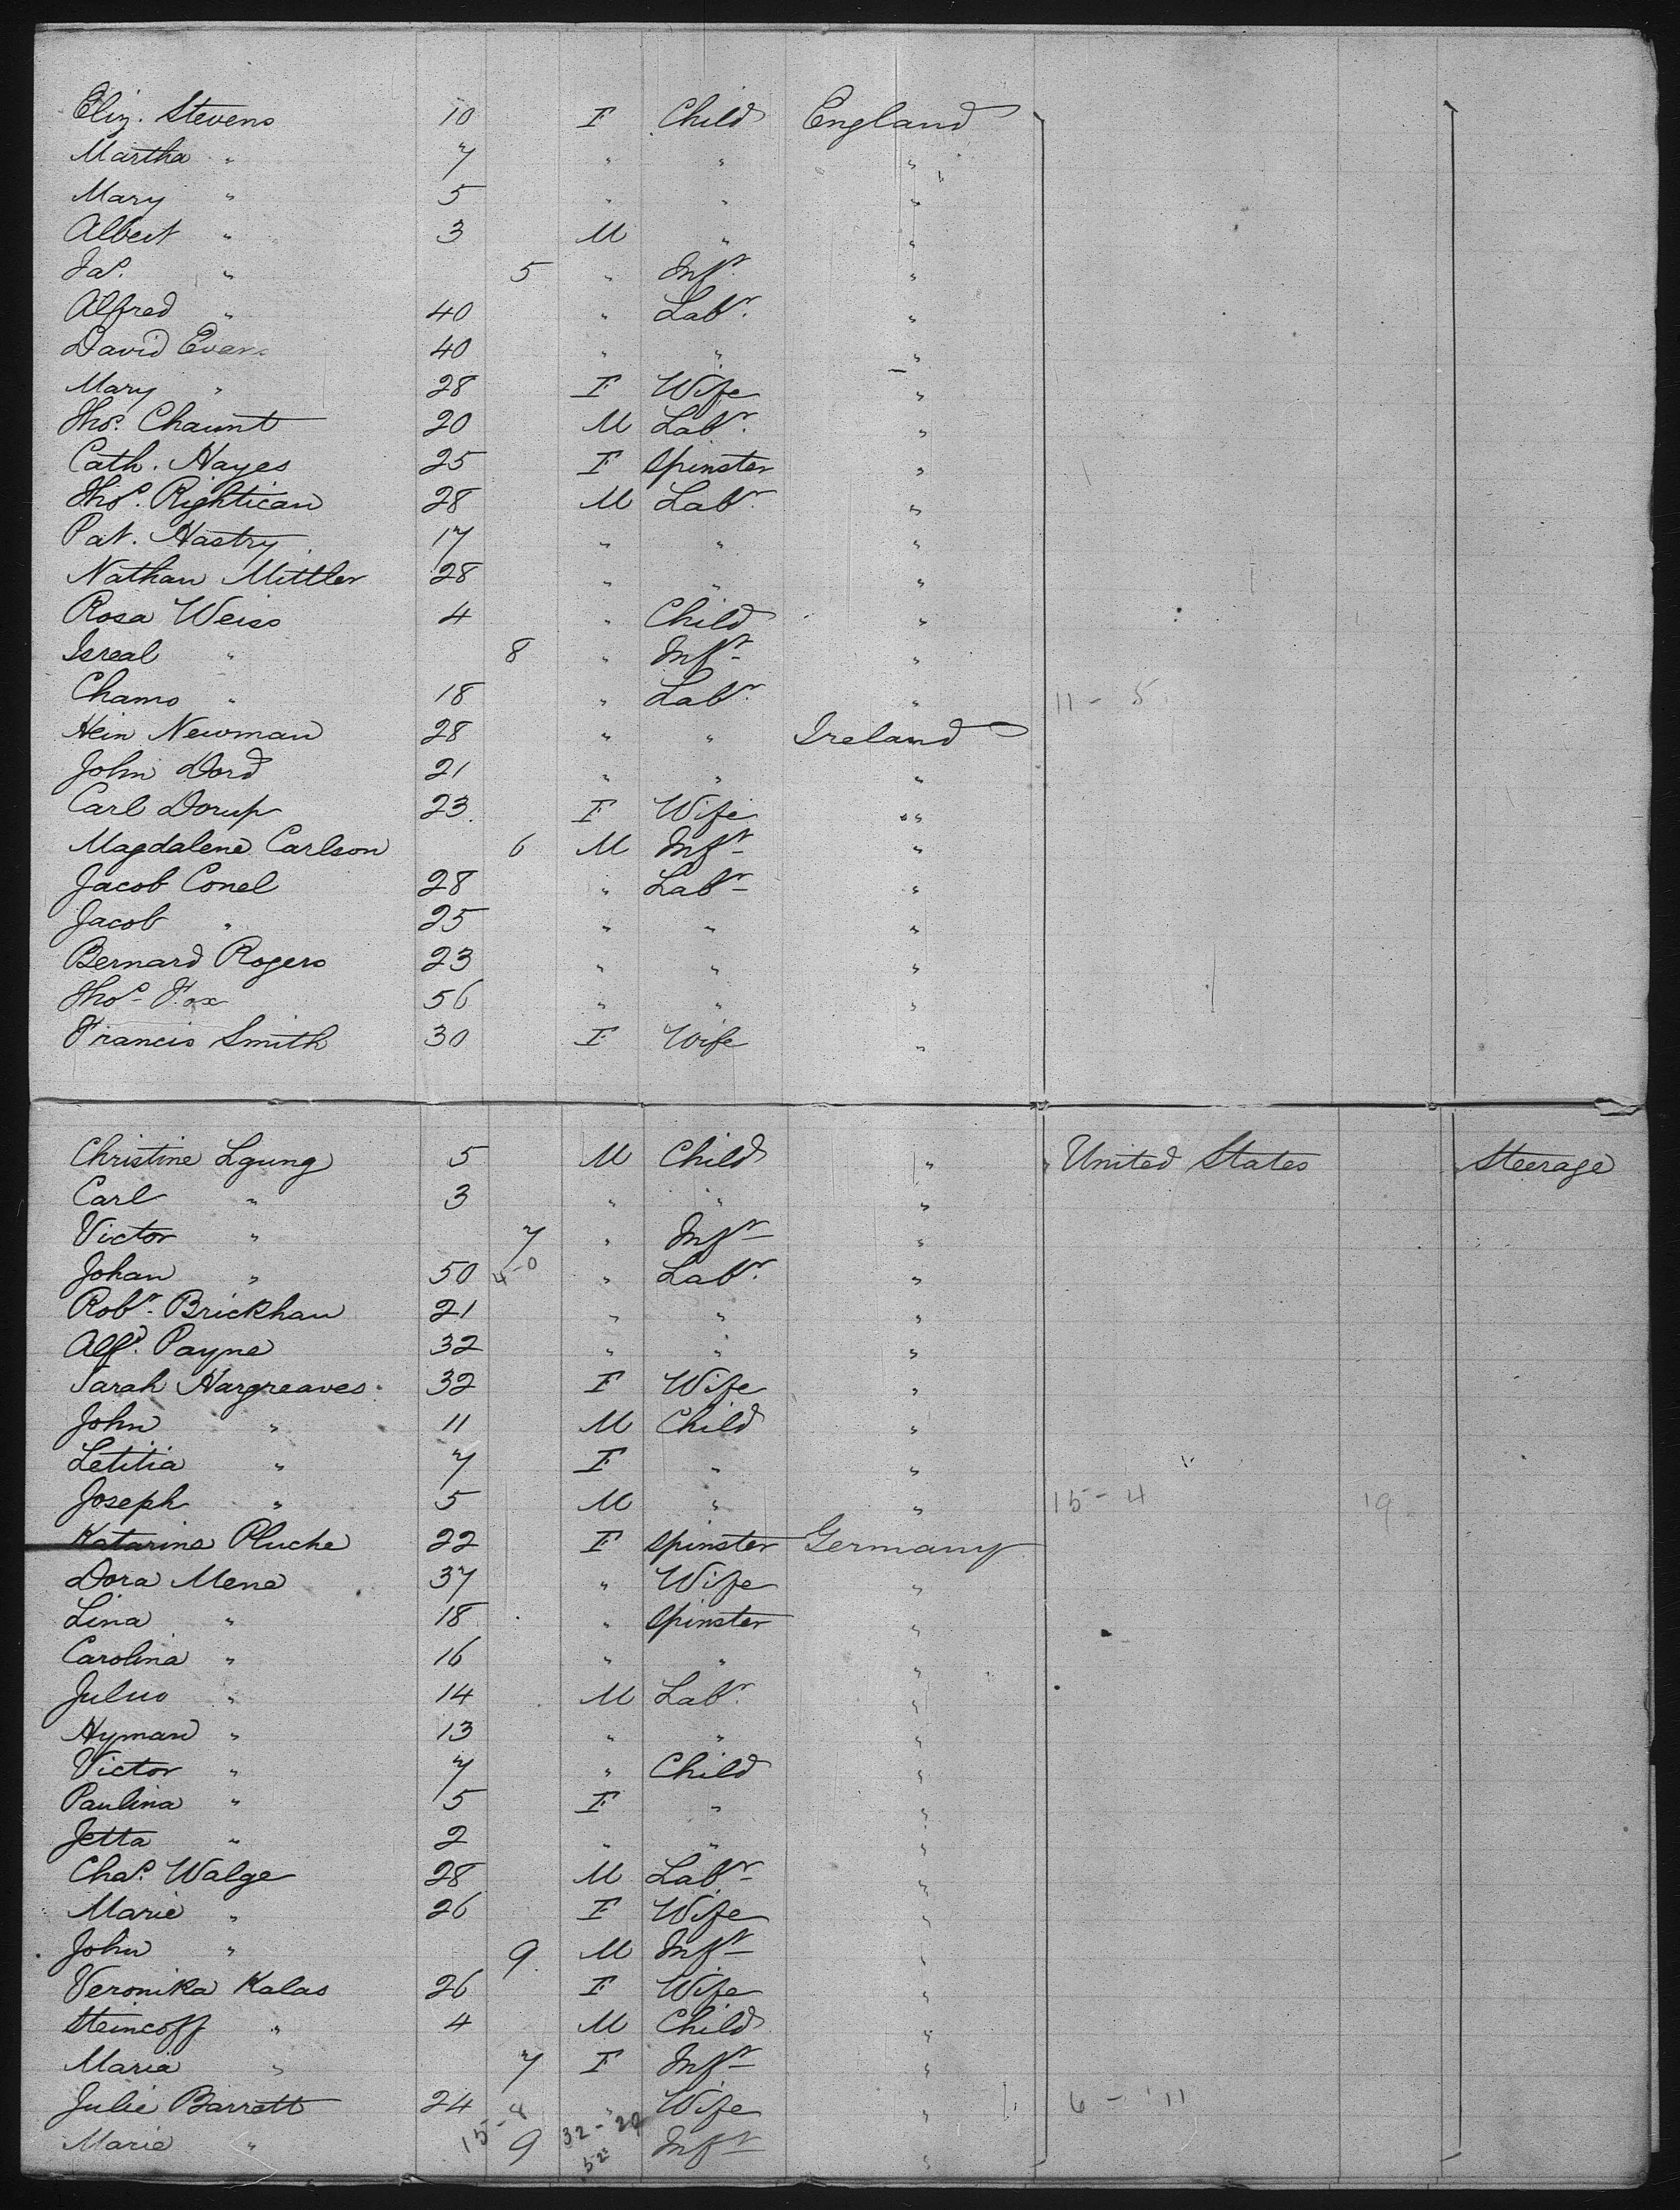 Eliz. Stevens 10 F Child England
Martha " 7 " " "
Mary " 5 " " "
Albert " 3 M " "
Jas. " 5 " Inft. "
Alfred " 40 " Labr. "
David Evans 40 " " "
Mary " 28 F Wife "
Thos. Chaunt 20 M Labr. "
Cath. Hayes 25 F Spinster "
Thos. Rightican 28 M Labr. "
Pat. Hastry 17 " " "
Nathan Mittler 28 " " "
Rosa Weiss 4 " Child "
Isreal " 8 " Inft "
Chamo " 18 " Labr. " 11 - 5
Hein Newman 28 " " Ireland
John Dord 21 " " "
Carl Dorup 23 F Wife "
Magdalene Carlson 6 M Inft "
Jacob Conel 28 " Labr "
Jacob " 25 " " "
Bernard Rogers 23 " " "
Thos Fox 56 " " "
Francis Smith 30 F Wife "
Christine Lgung 5 M Child " United States Steerage
Carl " 3 " " "
Victor " 7 " Inft "
Johan " 50 4-0 " Labr. "
Robt. Brickhau 21 " " "
Alfd. Payne 32 " " "
Sarah Hargreaves 32 F Wife "
John " 11 M Child "
Letitia " 7 F " "
Joseph " 5 M " " 15 - 4 19
Katarina Pluche 22 F Spinster Germany
Dora Mene 37 " Wife "
Lina " 18 " Spinster "
Carolina " 16 " " "
Julius " 14 M Labr. "
Hyman " 13 " " "
Victor " 7 " Child "
Paulina " 5 F " "
Jetta " 2 " " "
Chas. Walge 28 M Labr. "
Marie " 26 F Wife "
John " 9 M Inft "
Veronika Kalas 26 F Wife "
Steincoff " 4 M Child "
Maria " 7 F Inft "
Julie Barrett 24 " Wife " 6 - 11
Marie " 15-8 9 32-20 52 Inft "